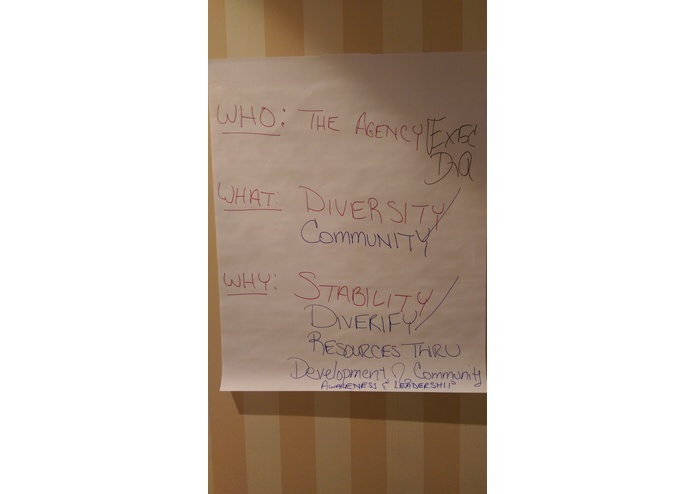 WHO: THE AGENCY/EXEC
DIR
WHAT: DIVERSITY/
COMMUNITY
WHY: STABILITY/
DIVERIFY/
RESOURCES THRU
Development Community
AWARENESS & LEADERSHIP